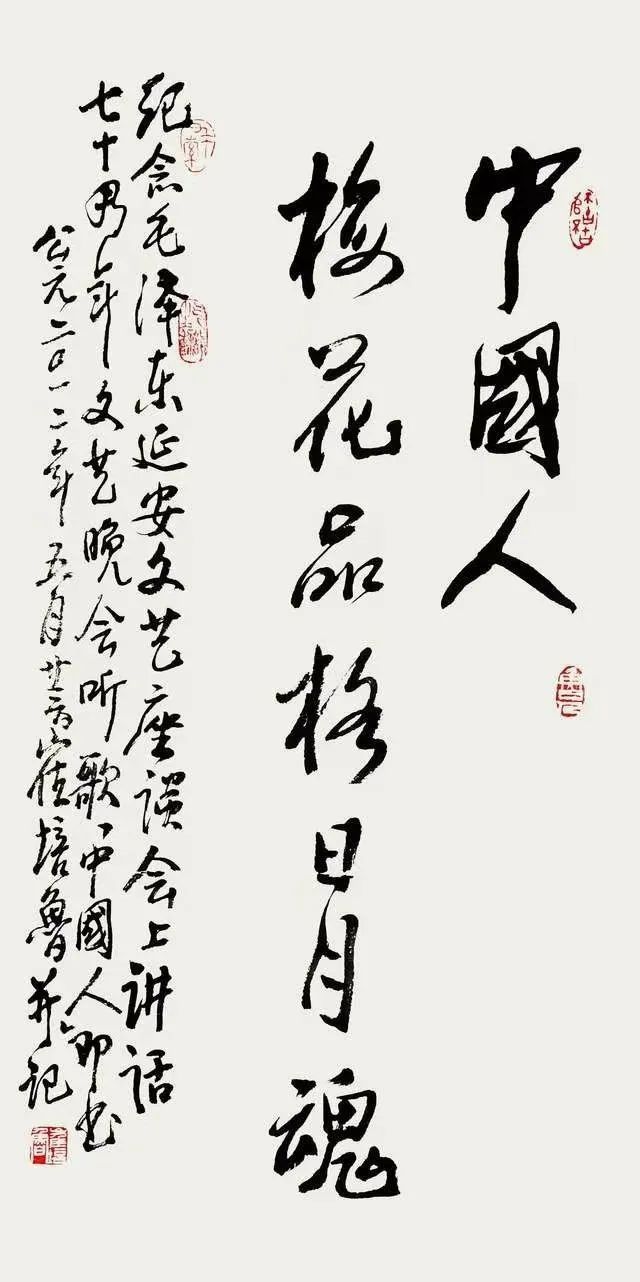 中國人
梅花品格日月魂
纪念毛泽东延安文艺座谈会上讲话
七十周年文艺晚会听歌中國人即书
公元二〇一二年五月廿三日崔培魯并记